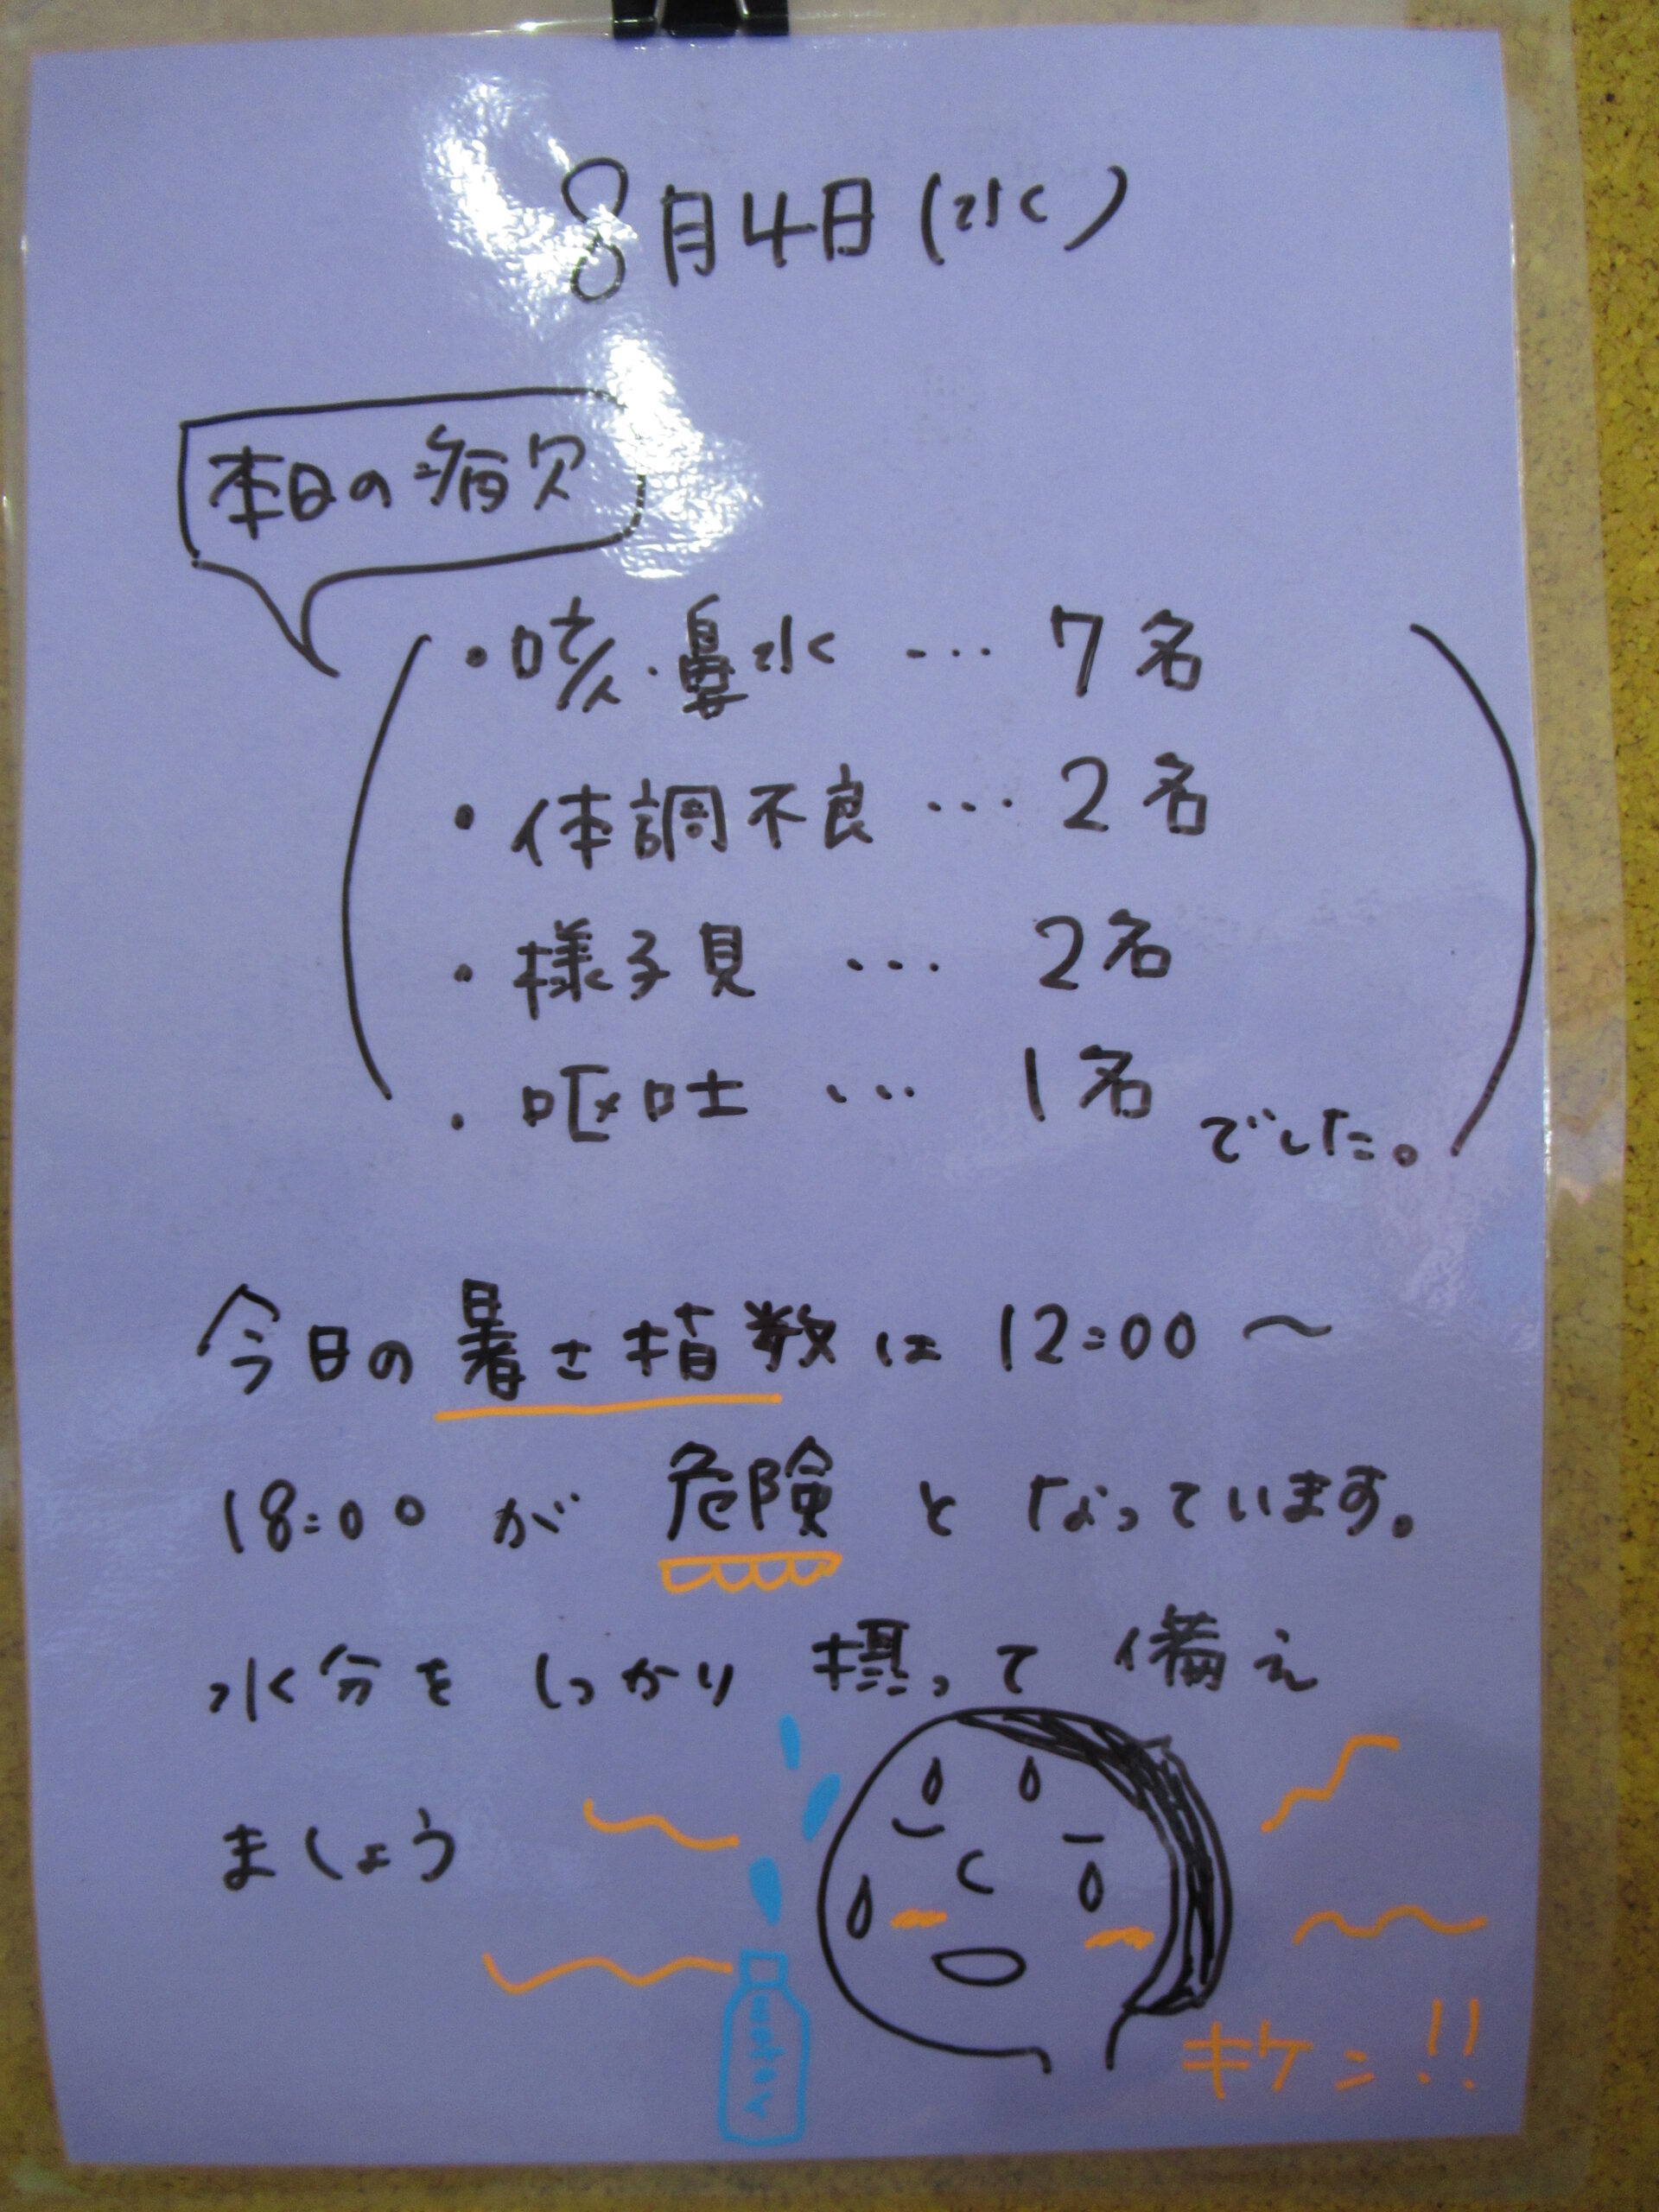 8月4日(水)
本日の病欠
・咳・鼻水 … 7名
・体調不良 … 2名
・様子見 … 2名
・呕吐 … 1名 でした。
今日の暑さ指数は 12:00〜
18:00 が 危険 と なっています。
水分を しっかり 摂って 備え
ましょう
water
キケン!!